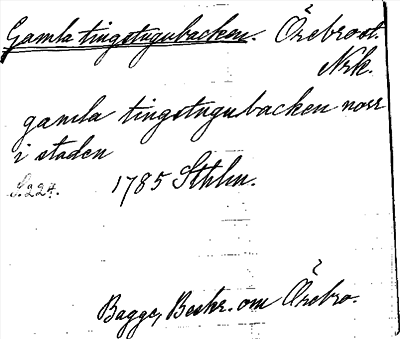 Gamla tingstugubacken. Örebro st.
Nrk.
gamla tingstugubacken norr
i staden
S. 224. 1785 Sthlm.
Bagge, Beskr. om Örebro.